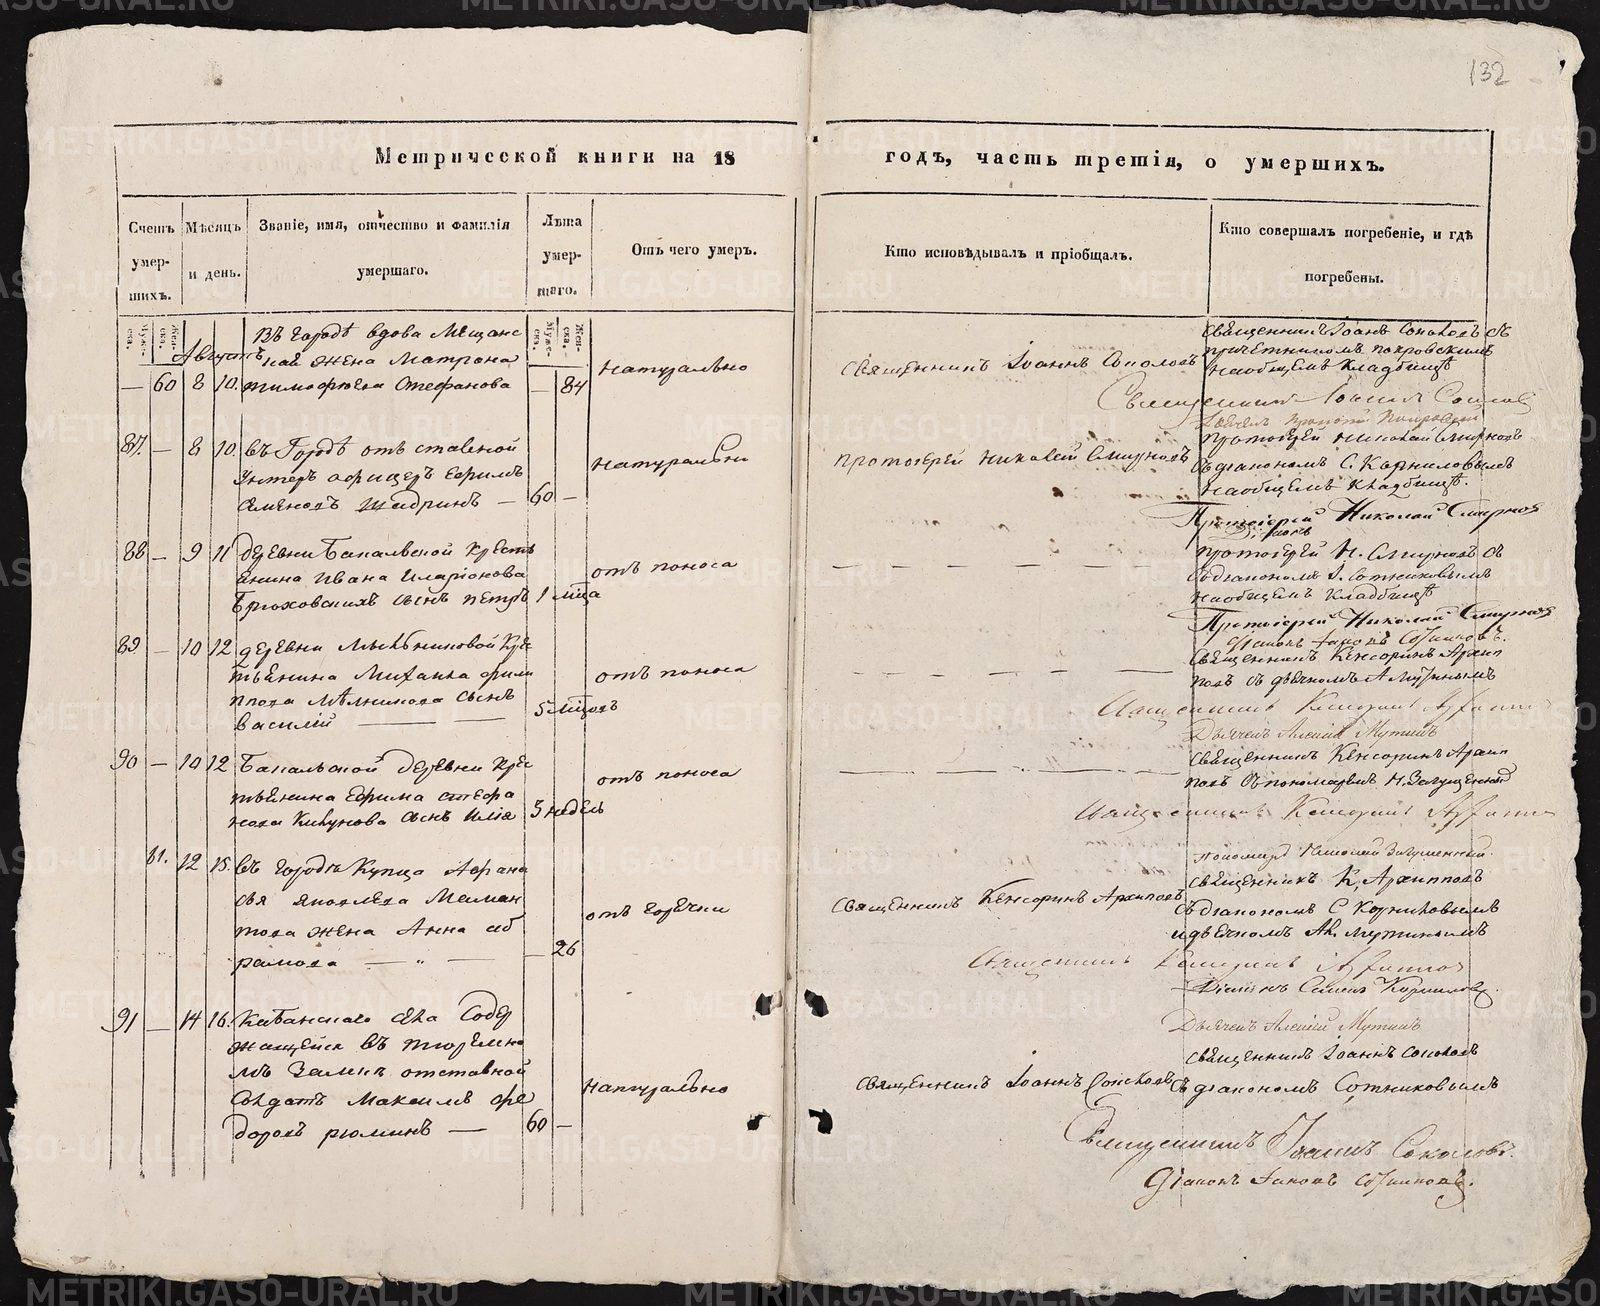 132
Метрической книги на 18
годъ, часть третія, о умершихъ.
Счетъ умер-шихъ.
Мѣсяцъ и день.
Званіе, имя, отчество и фамилія умершаго.
Лѣта умер-шаго.
Отъ чего умеръ.
Кто исповѣдывалъ и пріобщалъ.
Кто совершалъ погребеніе, и гдѣ погребены.
Муже-ска.
Жен-ска.
Муже-ска.
Жен-ска.
Августъ
Въ Городѣ вдова Мѣщанс
кая жена Матрона
— 60 8 10. тимофѣева Стефанова — 84
натурально
Священникъ Іоаннъ Соколовъ
Священникъ Іоаннъ Соколовъ съ
причетникомъ покровскимъ
на общемъ кладбищѣ
Священникъ Іоаннъ Соколовъ
87. — 8 10. въ Городѣ отъ ставной
унтеръ офицеръ Ефимъ
Семеновъ Шадринъ — 60 —
натурально
протоіерей николай Смирновъ
протоіерей николай Смирновъ
съ діакономъ С. Корниловымъ
на общемъ кладбищѣ.
Протоіерей Николай Смирнов
88 — 9 11 деревни Бакальской крестъ
янина Ивана Иларіонова
Брюховскихъ сынъ петръ 1 мѣца
отъ поноса
протоіерей Н. Смирновъ съ
съ діакономъ І. Сотниковымъ
на общемъ кладбищѣ
Протоіерей Николай Смирнов
Діаконъ Іаковъ Сотниковъ.
89 — 10 12 деревни Мыльниковой Крес
тьянина Михаила фили
ппова Мѣльникова сынъ
василій 5 мѣцовъ
отъ поноса
Священникъ Кенсоринъ Архип
повъ съ дьячкомъ А Мутинымъ
Священникъ Кенсоринъ Архиппов
Дьячекъ Алексій Мутинъ
90 — 10 12 Бакальской деревни Крес
тьянина Ефима стефа
нова Кикунова сынъ Илія 5 недель
отъ поноса
Священникъ Кенсоринъ Архип
повъ съ пономаремъ Н. Загуменны
Священникъ Кенсоринъ Архиппов
Пономарь Николай Загуменный.
61. 12 15. въ городѣ Купца Афана
сья яковлева Маман
това жена Анна аб
рамова — „ — — 26
отъ горячки
Священникъ Кенсоринъ Архиповъ
священникъ К. Архипповъ
съ діакономъ С Корниловымъ
и дьячкомъ Ал. Мутинымъ
Священникъ Кенсоринъ Архиппов
Діаконъ Семенъ Корниловъ.
Дьячекъ Алексій Мутинъ
91 — 14 16. Катанскаго села Содер
жащейся въ тюремно
мъ Замкѣ отставной
Солдатъ Максимъ фе
доровъ рюминъ — 60 —
натурально
Священникъ Іоаннъ Соколовъ
священникъ Іоаннъ Соколовъ
съ діакономъ Сотниковымъ
Священникъ Іоаннъ Соколовъ.
Діаконъ Іаковъ Сотниковъ.
METRIKI.GASO-URAL.RU